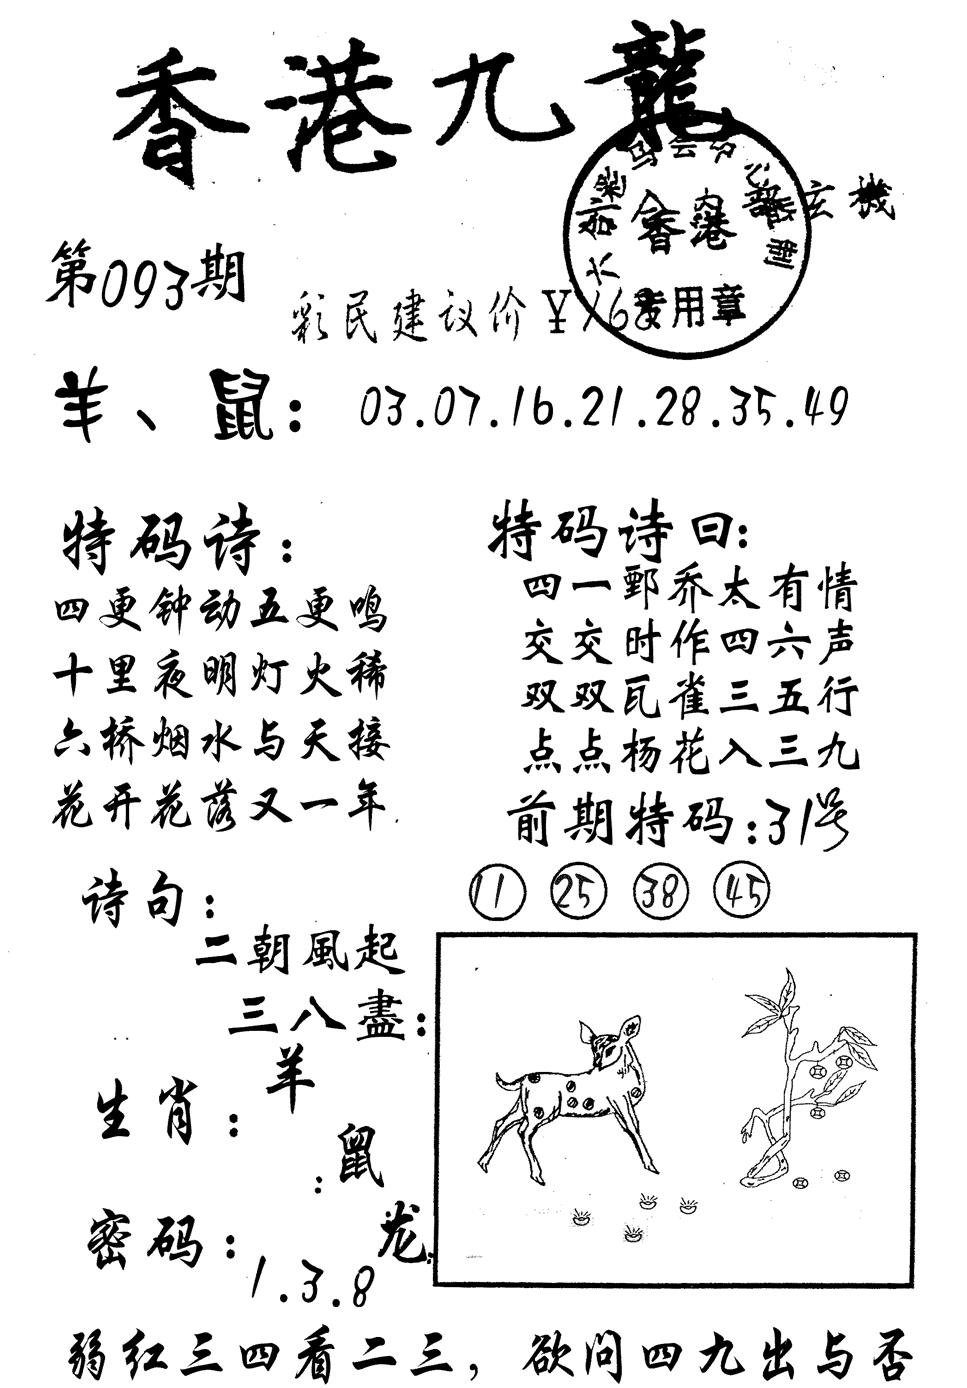 香港九龍
内部玄機
香港
专用章
第093期
彩民建议价￥168
羊、鼠：03.07.16.21.28.35.49
特码诗：
四更钟动五更鸣
十里夜明灯火稀
六桥烟水与天接
花开花落又一年
特码诗曰：
四一鄄乔太有情
交交时作四六声
双双瓦雀三五行
点点杨花入三九
前期特码：31号
11 25 38 45
诗句：
二朝風起
三八盡：
生肖：羊
：鼠
龙
密码：
1.3.8
弱红三四看二三，欲问四九出与否